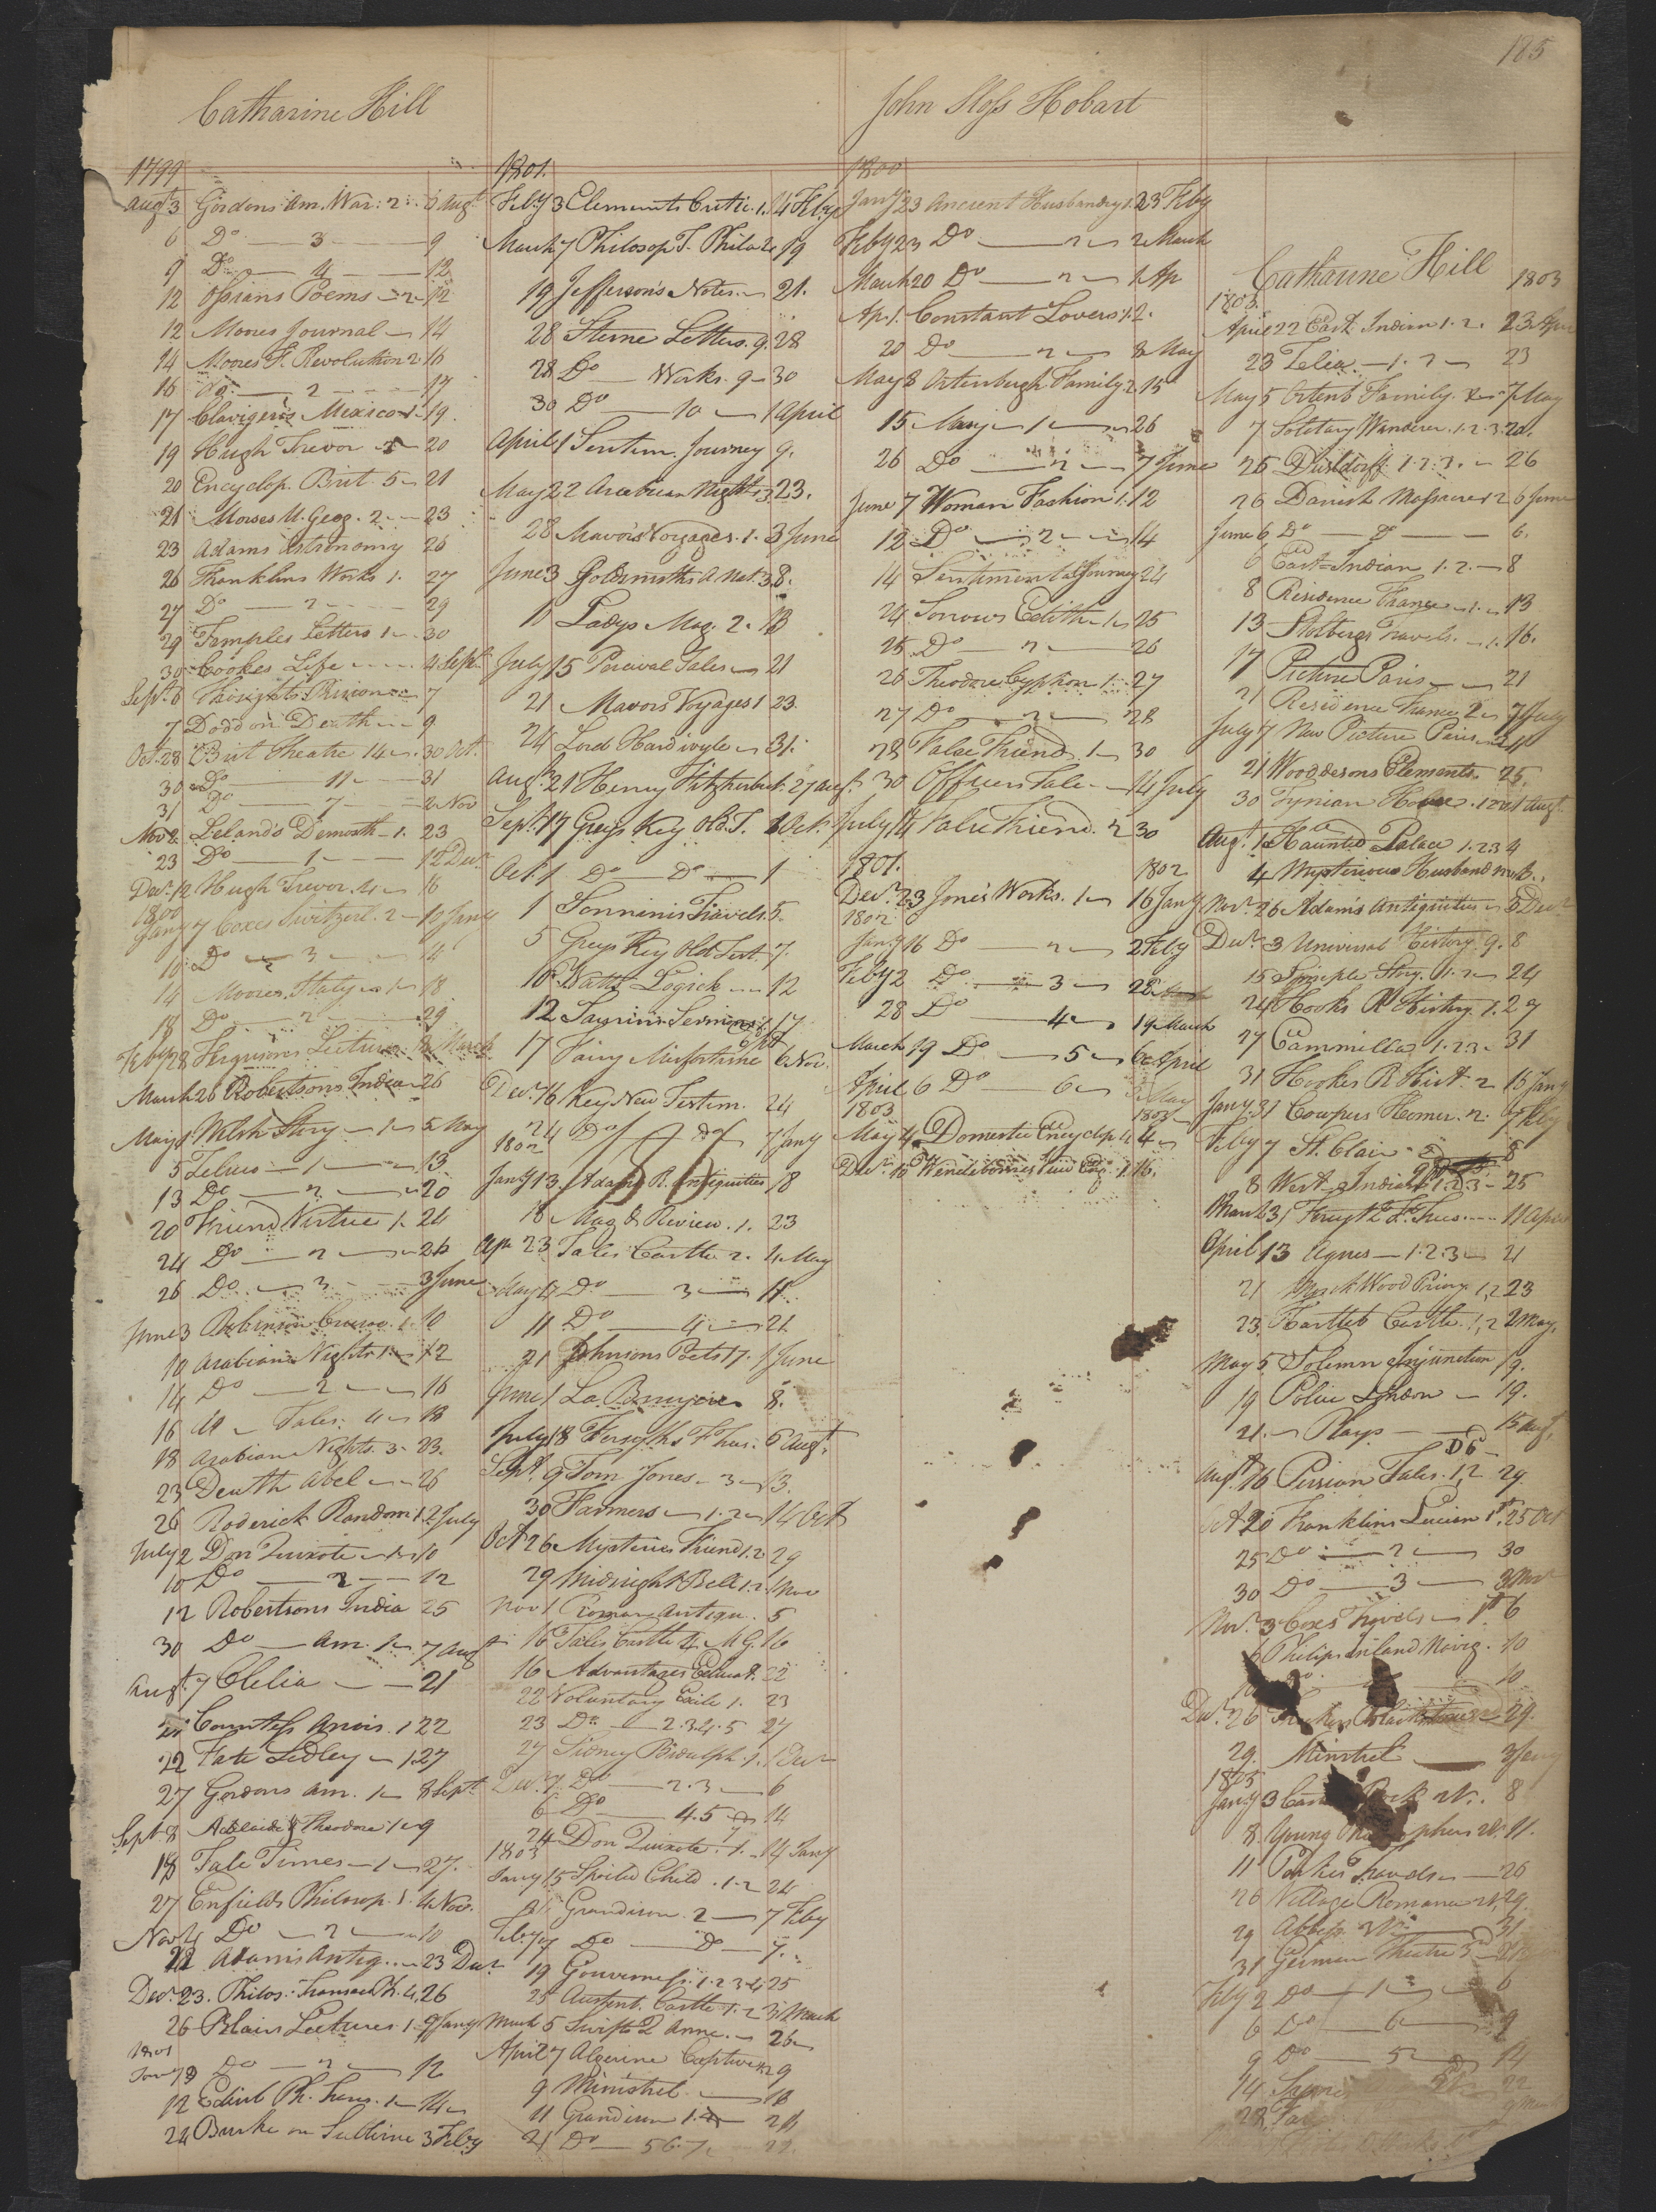 185
Catharine Hill
1799
Augt 3 Gordons Am. War: 2 6 Augt
6 Do 3 9
9 Do 4 12
12 Ossians Poems 2 12
12 Moores Journal 14
14 Moores F. Revolution 2 16
16 Do 2 17
17 Clavigero's Mexico 1 19.
19 Hugh Trevor 3 20
20 Encyclop. Brit. 5 21
21 Morses U. Geog. 2 23
23 Adams Astronomy 26
26 Franklins Works 1. 27
27 Do 2 29
29 Temples Letters 1 30
30 Cookes Life 4 Sept.
Sept. 6 7
7 Dodd on Death 9
Oct. 28 Brit Theatre 14 30 Oct.
30 Do 11 31
31 Do 7 2 Nov
Nov 2 Leland's Demosth 1. 23
23 Do 1 12 Decr
Decr 12 Hugh Trevor. 4 16
1800
Jany 7 Coxes Switzerl. 2 10 Jany
10 Do 3 14
14 Moores Italy 1 18
18 Do 2 29
Feby 28 Fergusons Lectures March
March 26 Robertsons India 26
May 1 Welsh Story 1 5 May
5 Zeluco 1 13
13 Do 2 20
20 Friend Virtue 1. 24
24 Do 2 26
26 Do 3 3 June
June 3 Robinson Crusoe. 1. 10
10 Arabian Nights 1. 12
14 Do 2 16
16 Do Tales. 4 18
18 Arabian Nights. 3. 23.
23 Death Abel 26
26 Roderick Random 1. 2 July
July 2 Don Quixote 1 10
10 Do 2 12
12 Robertsons India 25
30 Do Am. 1 7 Augt
Augt. 7 Clelia 21
21 Countess 1 22
22 Fate Sedley 1. 27
27 Gordons Am. 1 8 Sept.
Sept 8 Adelaide & Theodore 1 9
18 Tale Times 1 27.
27 Enfields Philosop. 1. 4 Nov.
Nov 4 Do 2 10
22 Adams Antiq. 23 Decr
Decr 23. Philos. Transact. 4. 26
26 Blairs Lectures 1. 9 Jany
1801
Jany 9 Do 2 12
12 Edinb Ph. Trans. 1 14
24 Burke on Sublime 3 Feby
1801.
Feby 3 Elements Critic. 1. 4 Feby
March 7 Philosop. T. Phila 2 19
19 Jefferson's Notes. 21.
28 Sterne Letters. 9. 28
28 Do Works. 9 30
30 Do 10 1 April
April 1 Sentim. Journey 9.
May 22 Arabian Nights 3 23.
28 Mavor's Voyages. 1. 3 June
June 3 Goldsmiths A Nat. 3 8.
10 Ladys Mag. 2. 13
July 15 Percival Tales 21
21 Mavors Voyages 1 23.
24 Lord Hardivyle 31.
Augt. 21 Henry Fitzherbert. 27 Augt.
Sept. 17 Greys Key Old. T. 1 Oct.
Oct. 1 Do Do 1
1 Sonninis Travels 5.
5 Greys Key Old Test. 7.
10 Watts Logick 12
12 Saurins Sermons 17
17 Fairy Misfortune 6 Nov.
Decr. 16 Key New Testam. 24
24 Do Do 7 Jany
1802
Jany 13 Adams R. Antiquities 18
18 Mag & Review. 1. 23
Apr 23 Tales Castle 2. 4 May
May 4 Do 3 11
11 Do 4 21
21 Johnsons Poets 17. 1 June
June 1 La Bruyere 8.
July 18 Forsyths F Trees. 6 Augt.
Sept. 9 Tom Jones. 3 13.
30 Farmers 1. 2 14 Oct
Oct 26 Mysteries Friend 1. 2 29
29 Midnight Bell 1. 2. 1 Nov
Nov 1 Roman Antiqu. 5
16 Tales Castle 4. 16
16 Advantages Educat. 22
22 Voluntary Exile 1. 23
23 Do 2. 3. 4. 5 27
27 Sidney Bidulph. 1. 1 Decr
Decr. 1. Do 2. 3 6
6 Do 4. 5 14
24 Don Quixote. 1. 14 Jany
1803
Jany 15 Spoiled Child. 1. 2 24
Grandison. 2 7 Feby
Feby 7 Do Do 7.
19 Gouverness. 1. 2. 3. 4 25
25 Austenb. Castle 1. 2 3 March
March 5 Swifts Q Anne. 26
April 7 Algerine Captive 1. 2 9
9 Minstrel 10
11 Grandison 1. 4 21
21 Do 5 6. 7
John Sloss Hobart
1800
Jany 23 Ancient Husbandry 1. 23 Feby
Feby 23 Do 2 2 March
March 20 Do 2 1 Ap
Ap. 1. Constant Lovers 1. 2.
20 Do 2 8 May
May 8 Ortenburgh Family 2. 15
15 Mary 1 26
26 Do 2 7 June
June 7 Woman Fashion 1. 12
12 Do 2 14
14 Sentimental Journey 24
24 Sorrows Edith 1 25
25 Do 2 26
26 Theodore Cyphon 1. 27
27 Do 2 28
28 False Friend 1 30
30 Officers Tale 14 July
July 14 False Friend. 2 30
1801. 1802
Decr. 23 Jones Works. 1 16 Jany
1802
Jany 16 Do 2 2 Feby
Feby 2 Do 3 28
28 Do 4 19 March
March 19 Do 5 6 April
April 6 Do 6 May
1803 1803
May 4 Domestic Encyclop. 4
Catharine Hill 1803
1803.
April 22 East Indian 1. 2. 23 Apr
23 1. 2 23
May 5 Ortenb Family. 7 May
7 Solitary Wanderer. 1. 2. 3. 20.
25 Dusseldorff 1. 2. 3. 26
26 Danish Massacre 1. 2 6 June
June 6 Do Do 6.
6 East-Indian 1. 2. 8
8 Residence France 1. 13
13 Stolbergs Travels. 1. 16.
17 Picture Paris 21
21 Residence France 2 7 July
July 7 New Picture Paris 11
21 Wooddesons Elements. 25.
30 1 Augt
Augt. 1 Haunted Palace 1. 2. 3 4
4 Mysterious Husband
Novr. 26 Adam's Antiquities 3 Decr
Decr. 3 Universal History. 9. 8
15 Simple Story. 1. 2 24
24 Hooks R History. 1. 27
27 Cammilla 1. 2. 3. 31
31 Hookes R Hist. 2 16 Jany
Jany 31 Cowpers Homer. 2. 7 Feby
Feby 7 St. Clair 8
8 West Indian 1. 2. 3 25
March 31 Forsyth F. Trees. 11 April
April 13 Agnes 1. 2. 3 21
21 Wood Priory 1, 2 23
23. Hartleb Castle. 1, 2 2 May.
May 5 Solemn Injunction 19.
19 Police London 19.
21. Plays 15 Augt.
Augt. 16 Persian Tales. 1, 2 29
Oct 20 Franklins Lucian 1st. 25 Oct
25 Do 2 30
30 Do 3 3 Novr
Novr 3 Coxes Travels 1st. 6
6 Philips Inland Navig. 10
10
Decr. 26 Tuckers Blackstone 29.
29. Minstrel 3 Jany
1805
Jany 3 8
8. Young 11.
11 Parkes Travels 26
26 Village Romance 29.
29 Abbess. 31
31 German Theatre 3d
Feby 2 Do 1 6
6 Do 6 9
9 Do 5 14
14 22
22